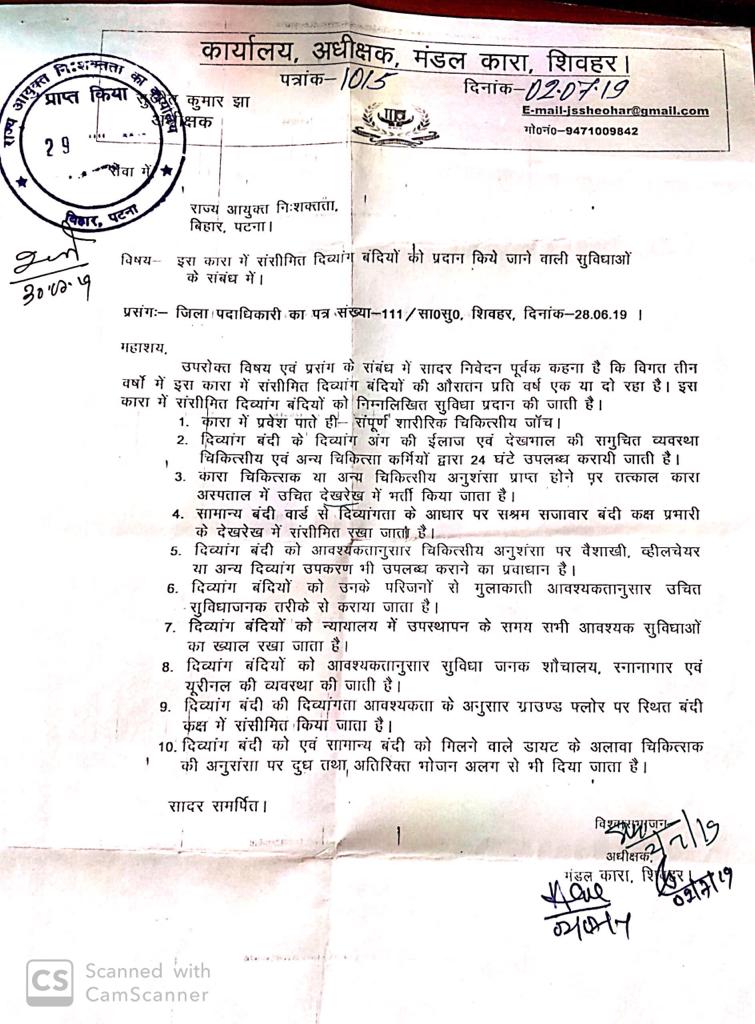 कार्यालय, अधीक्षक, मंडल कारा, शिवहर।
पत्रांक-1015 दिनांक-02.07.19
कुमार झा
E-mail-jssheohar@gmail.com
मो०नं०-9471009842
राज्य आयुक्त निःशक्तता का कार्यालय
प्राप्त किया
29
बिहार, पटना
सेवा में
राज्य आयुक्त निःशक्तता,
बिहार, पटना।
विषय- इस कारा में संसीमित दिव्यांग बंदियों को प्रदान किये जाने वाली सुविधाओं
के संबंध में।
प्रसंगः- जिला पदाधिकारी का पत्र संख्या-111/सा0सु0, शिवहर, दिनांक-28.06.19 ।
महाशय,
उपरोक्त विषय एवं प्रसंग के संबंध में सादर निवेदन पूर्वक कहना है कि विगत तीन
वर्षो में इस कारा में संसीमित दिव्यांग बंदियों की औसतन प्रति वर्ष एक या दो रहा है। इस
कारा में संसीमित दिव्यांग बंदियों को निम्नलिखित सुविधा प्रदान की जाती है।
1. कारा में प्रवेश पाते ही- संपूर्ण शारीरिक चिकित्सीय जॉच।
2. दिव्यांग बंदी के दिव्यांग अंग की ईलाज एवं देखभाल की समुचित व्यवस्था
चिकित्सीय एवं अन्य चिकित्सा कर्मियों द्वारा 24 घंटे उपलब्ध करायी जाती है।
3. कारा चिकित्सक या अन्य चिकित्सीय अनुशंसा प्राप्त होने पर तत्काल कारा
अस्पताल में उचित देखरेख में भर्ती किया जाता है।
4. सामान्य बंदी वार्ड से दिव्यांगता के आधार पर सश्रम सजावार बंदी कक्ष प्रभारी
के देखरेख में संसीमित रखा जाता है।
5. दिव्यांग बंदी को आवश्यकतानुसार चिकित्सीय अनुशंसा पर वैशाखी, व्हीलचेयर
या अन्य दिव्यांग उपकरण भी उपलब्ध कराने का प्रवाधान है।
6. दिव्यांग बंदियों को उनके परिजनों से मुलाकाती आवश्यकतानुसार उचित
सुविधाजनक तरीके से कराया जाता है।
7. दिव्यांग बंदियों को न्यायालय में उपस्थापन के समय सभी आवश्यक सुविधाओं
का ख्याल रखा जाता है।
8. दिव्यांग बंदियों को आवश्यकतानुसार सुविधा जनक शौचालय, स्नानागार एवं
यूरीनल की व्यवस्था की जाती है।
9. दिव्यांग बंदी की दिव्यांगता आवश्यकता के अनुसार ग्राउण्ड फ्लोर पर स्थित बंदी
कक्ष में संसीमित किया जाता है।
10. दिव्यांग बंदी को एवं सामान्य बंदी को मिलने वाले डायट के अलावा चिकित्सक
की अनुशंसा पर दुध तथा अतिरिक्त भोजन अलग से भी दिया जाता है।
सादर समर्पित।
विश्वासभाजन
अधीक्षक,
मंडल कारा, शिवहर।
02/7/19
CS Scanned with
CamScanner